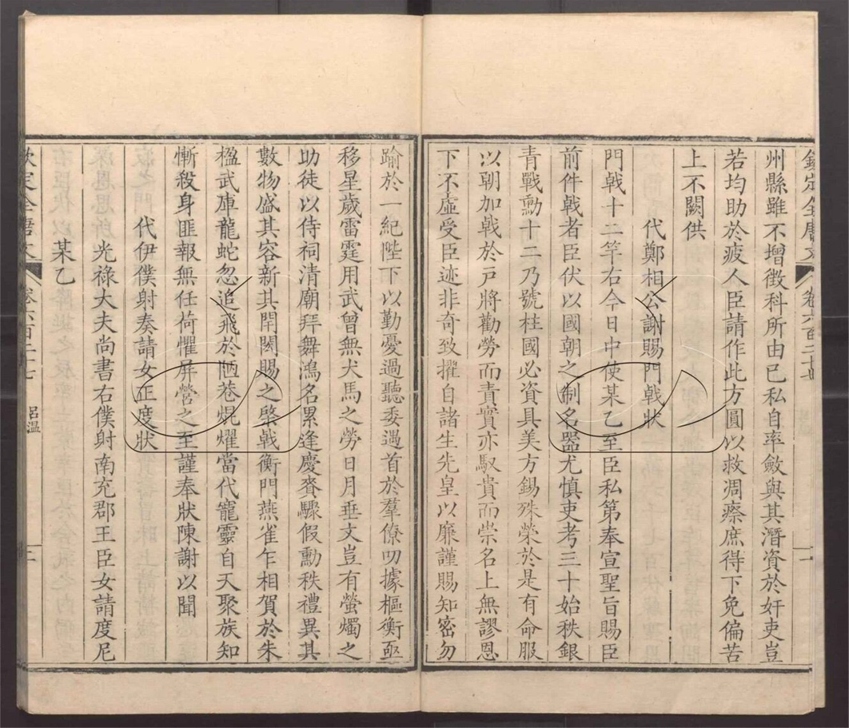 欽定全唐文 卷六百二十七
州縣雖不增徵科所由已私自率斂與其潛資於奸吏豈
若均助於疲人臣請作此方圓以救凋瘵庶得下免偏苦
上不闕供
代鄭相公謝賜門戟狀
門戟十二竿右今日中使某乙至臣私第奉宣聖旨賜臣
前件戟者臣伏以國朝之制名器尤慎吏考三十始秩銀
青戰勳十二乃號柱國必資具美方錫殊榮於是有命服
以朝加戟於戶將勸勞而責實亦馭貴而崇名上無謬恩
下不虛受臣迹非奇致擢自諸生先皇以廉謹賜知密勿
踰於一紀陛下以勤憂過聽委遇首於羣僚叨據樞衡亟
移星歲雷霆用武曾無犬馬之勞日月垂文豈有螢燭之
助徒以侍祠清廟拜舞鴻名累逢慶賚驟假勳秩禮異其
數物盛其容新其閈閎賜之棨戟衡門燕雀乍相賀於朱
楹武庫龍蛇忽追飛於陋巷焜燿當代寵靈自天聚族知
慚殺身匪報無任荷懼屏營之至謹奉狀陳謝以聞
代伊僕射奏請女正度狀
光祿大夫尚書右僕射南充郡王臣女請度尼
某乙
欽定全唐文 卷六百二十七 呂溫 二